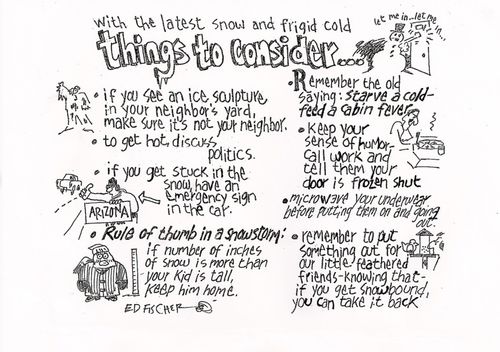 with the latest snow and frigid cold
things to consider....
let me in..let me in...
• if you see an ice sculpture
in your neighbor's yard,
make sure it's not your neighbor.
• to get hot, discuss
politics.
• if you get stuck in the
snow, have an
emergency sign
in the car.
ARIZONA
• Rule of thumb in a snowstorm:
if number of inches
of snow is more than
your kid is tall,
keep him home.
ED FISCHER
• Remember the old
saying: starve a cold-
feed a cabin fever
• keep your
sense of humor-
call work and
tell them your
door is frozen shut
• microwave your underwear
before putting them on and going
out.
• remember to put
something out for
our little feathered
friends-knowing that-
if you get snowbound,
you can take it back